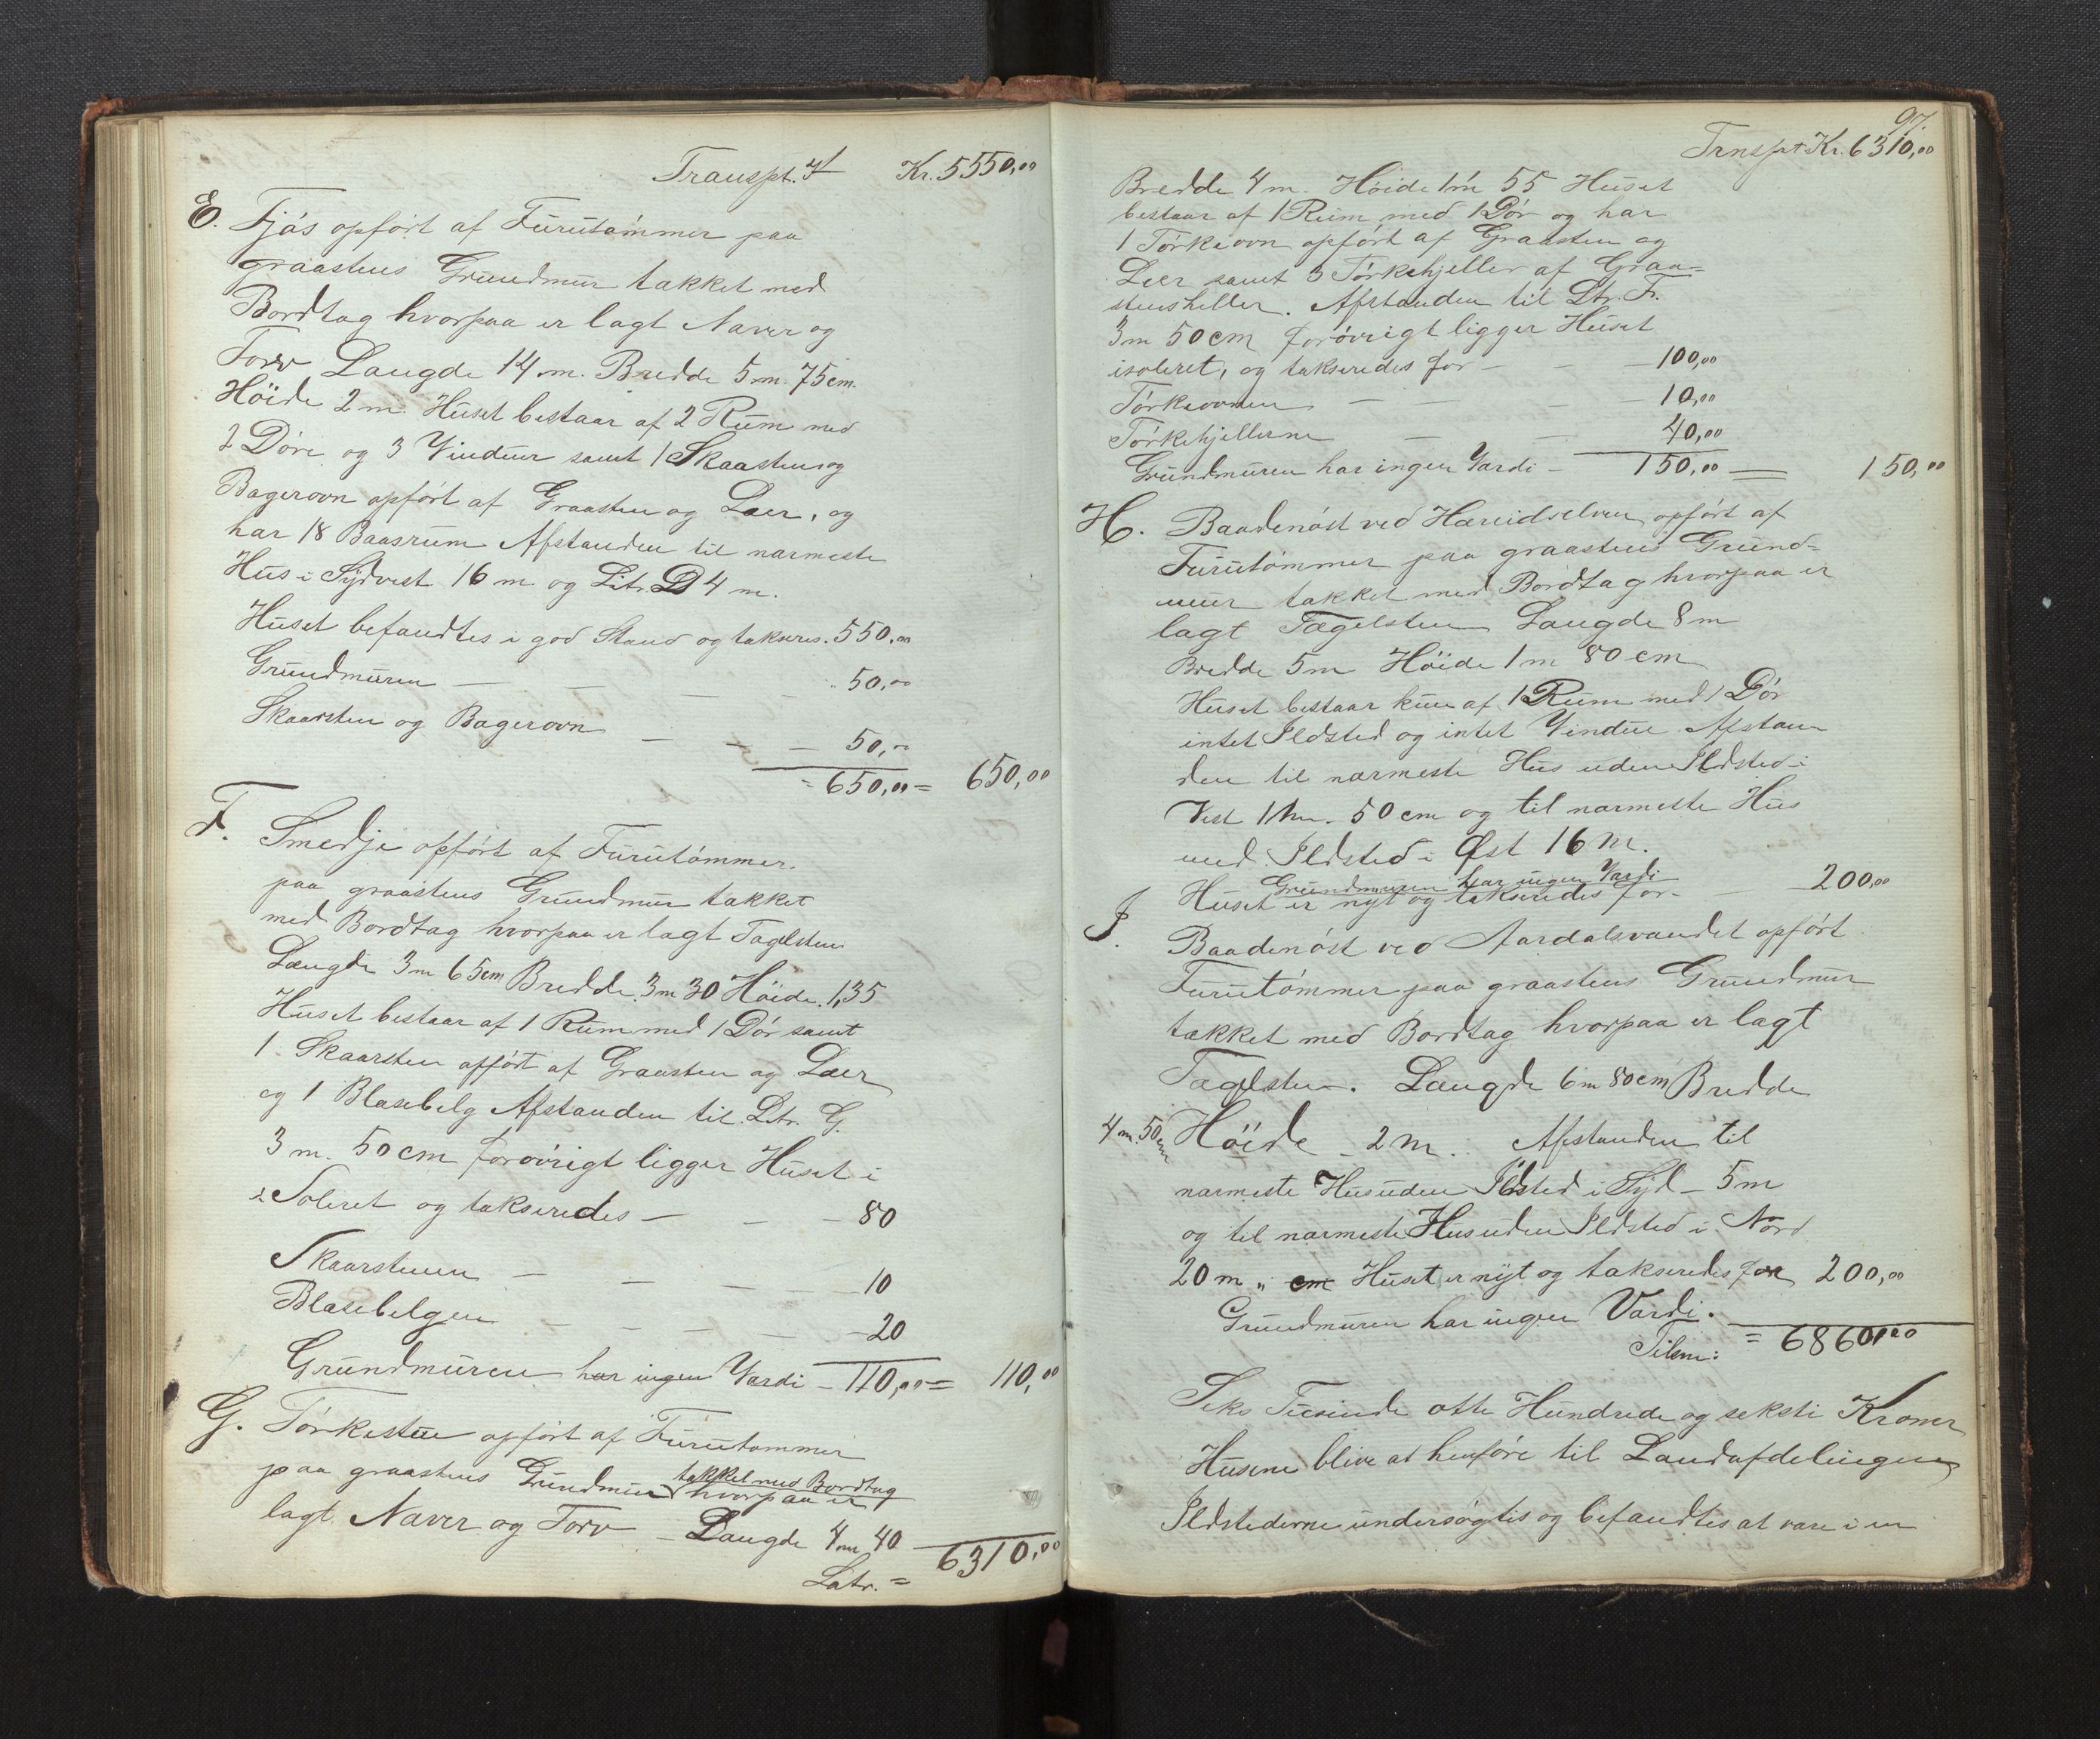 Transpt. Kr. 5550,00
E. Fjøs opført af Furutømmer paa
graastens Grundmur takket med
Bordtag hvorpaa er lagt Naver og
Torv Længde 14 m. Bredde 5 m. 75 cm.
Høide 2 m. Huset bestaar af 2 Rum med
2 Døre og 3 Vinduer samt 1 Skaasten og
Bagerovn opført af Graasten og Leer, og
har 18 Baasrum Afstanden til nærmeste
Hus i Sydvest 16 m. og Litr. D 4 m.
Huset befandtes i god Stand og takseres. 550,00
Grundmuren — — — — 50,00
Skaarsten og Bagerovn — — — 50,00
= 650,00 = 650,00
F. Smedje opført af Furutømmer.
paa graastens Grundmur takket
med Bordtag hvorpaa er lagt Tagelsten
Længde 3 m 65 cm Bredde 3 m 30 Høide 1,35
Huset bestaar af 1 Rum med 1 Dør samt
1 Skaarsten opført af Graasten og Leer
og 1 Blasebelg Afstanden til Litr. G.
3 m. 50 cm forøvrigt ligger Huset i
isoleret og takseredes — — — 80
Skaarstenen — — — — 10
Blasebelgen — — — — — 20
Grundmuren har ingen Værdi — 110,00 = 110,00
G. Tørkestue opført af Furutømmer
takket med Bordtag
paa graastens Grundmur hvorpaa er
lagt Naver og Torv — Længde 4 m 40
Latr. = 6310,00
97.
Trnsprt Kr. 6310,00
Bredde 4 m. Høide 1 m 55 Huset
bestaar af 1 Rum med 1 Dør og har
1 Tørkeovn opført af Graasten og
Leer samt 3 Tørkehjeller af Graa=
stensheller. Afstanden til Ltr. F.
3 m 50 cm forøvrigt ligger Huset
isoleret, og takseredes for — — — 100,00
Tørkeovnen — — — — 10,00
Tørkehjellerne — — 40,00
Grundmuren har ingen Værdi — 150,00 = 150,00
H. Baadenøst ved Hareidselven opført af
Furutømmer paa graastens Grund=
mur takket med Bordtag hvorpaa er
lagt Tægelsten Længde 8 m
Bredde 5 m Høide 1 m 80 cm
Huset bestaar kun af 1 Rum med 1 Dør
intet Ildsted og intet Vindue Afstan
den til nærmeste Hus uden Ildsted i
Vest 1 m. 50 cm og til nærmeste Hus
med Ildsted i Øst 16 m.
Grundmuren har ingen Værdi
Huset er nyt og takseredes for — 200,00
J. Baadenøst ved Aardalsvandet opført
Furutømmer paa graastens Grundmur
takket med Bordtag hvorpaa er lagt
Tagelsten. Længde 6 m 80 cm Bredde
4 m. 50 cm Høide — 2 m. Afstanden til
nærmeste Hus uden Ildsted i Syd — 5 m
og til nærmeste Hus uden Ildsted i Nord
20 m „ cm Huset er nyt og takseredes for 200,00
Grundmuren har ingen Værdi.
Tilsm: = 6860,00
Seks Tusinde otte Hundrede og seksti Kroner
Husene blive at henføre til Landafdelingen
Ildstederne undersøgtes og befandtes at være i en